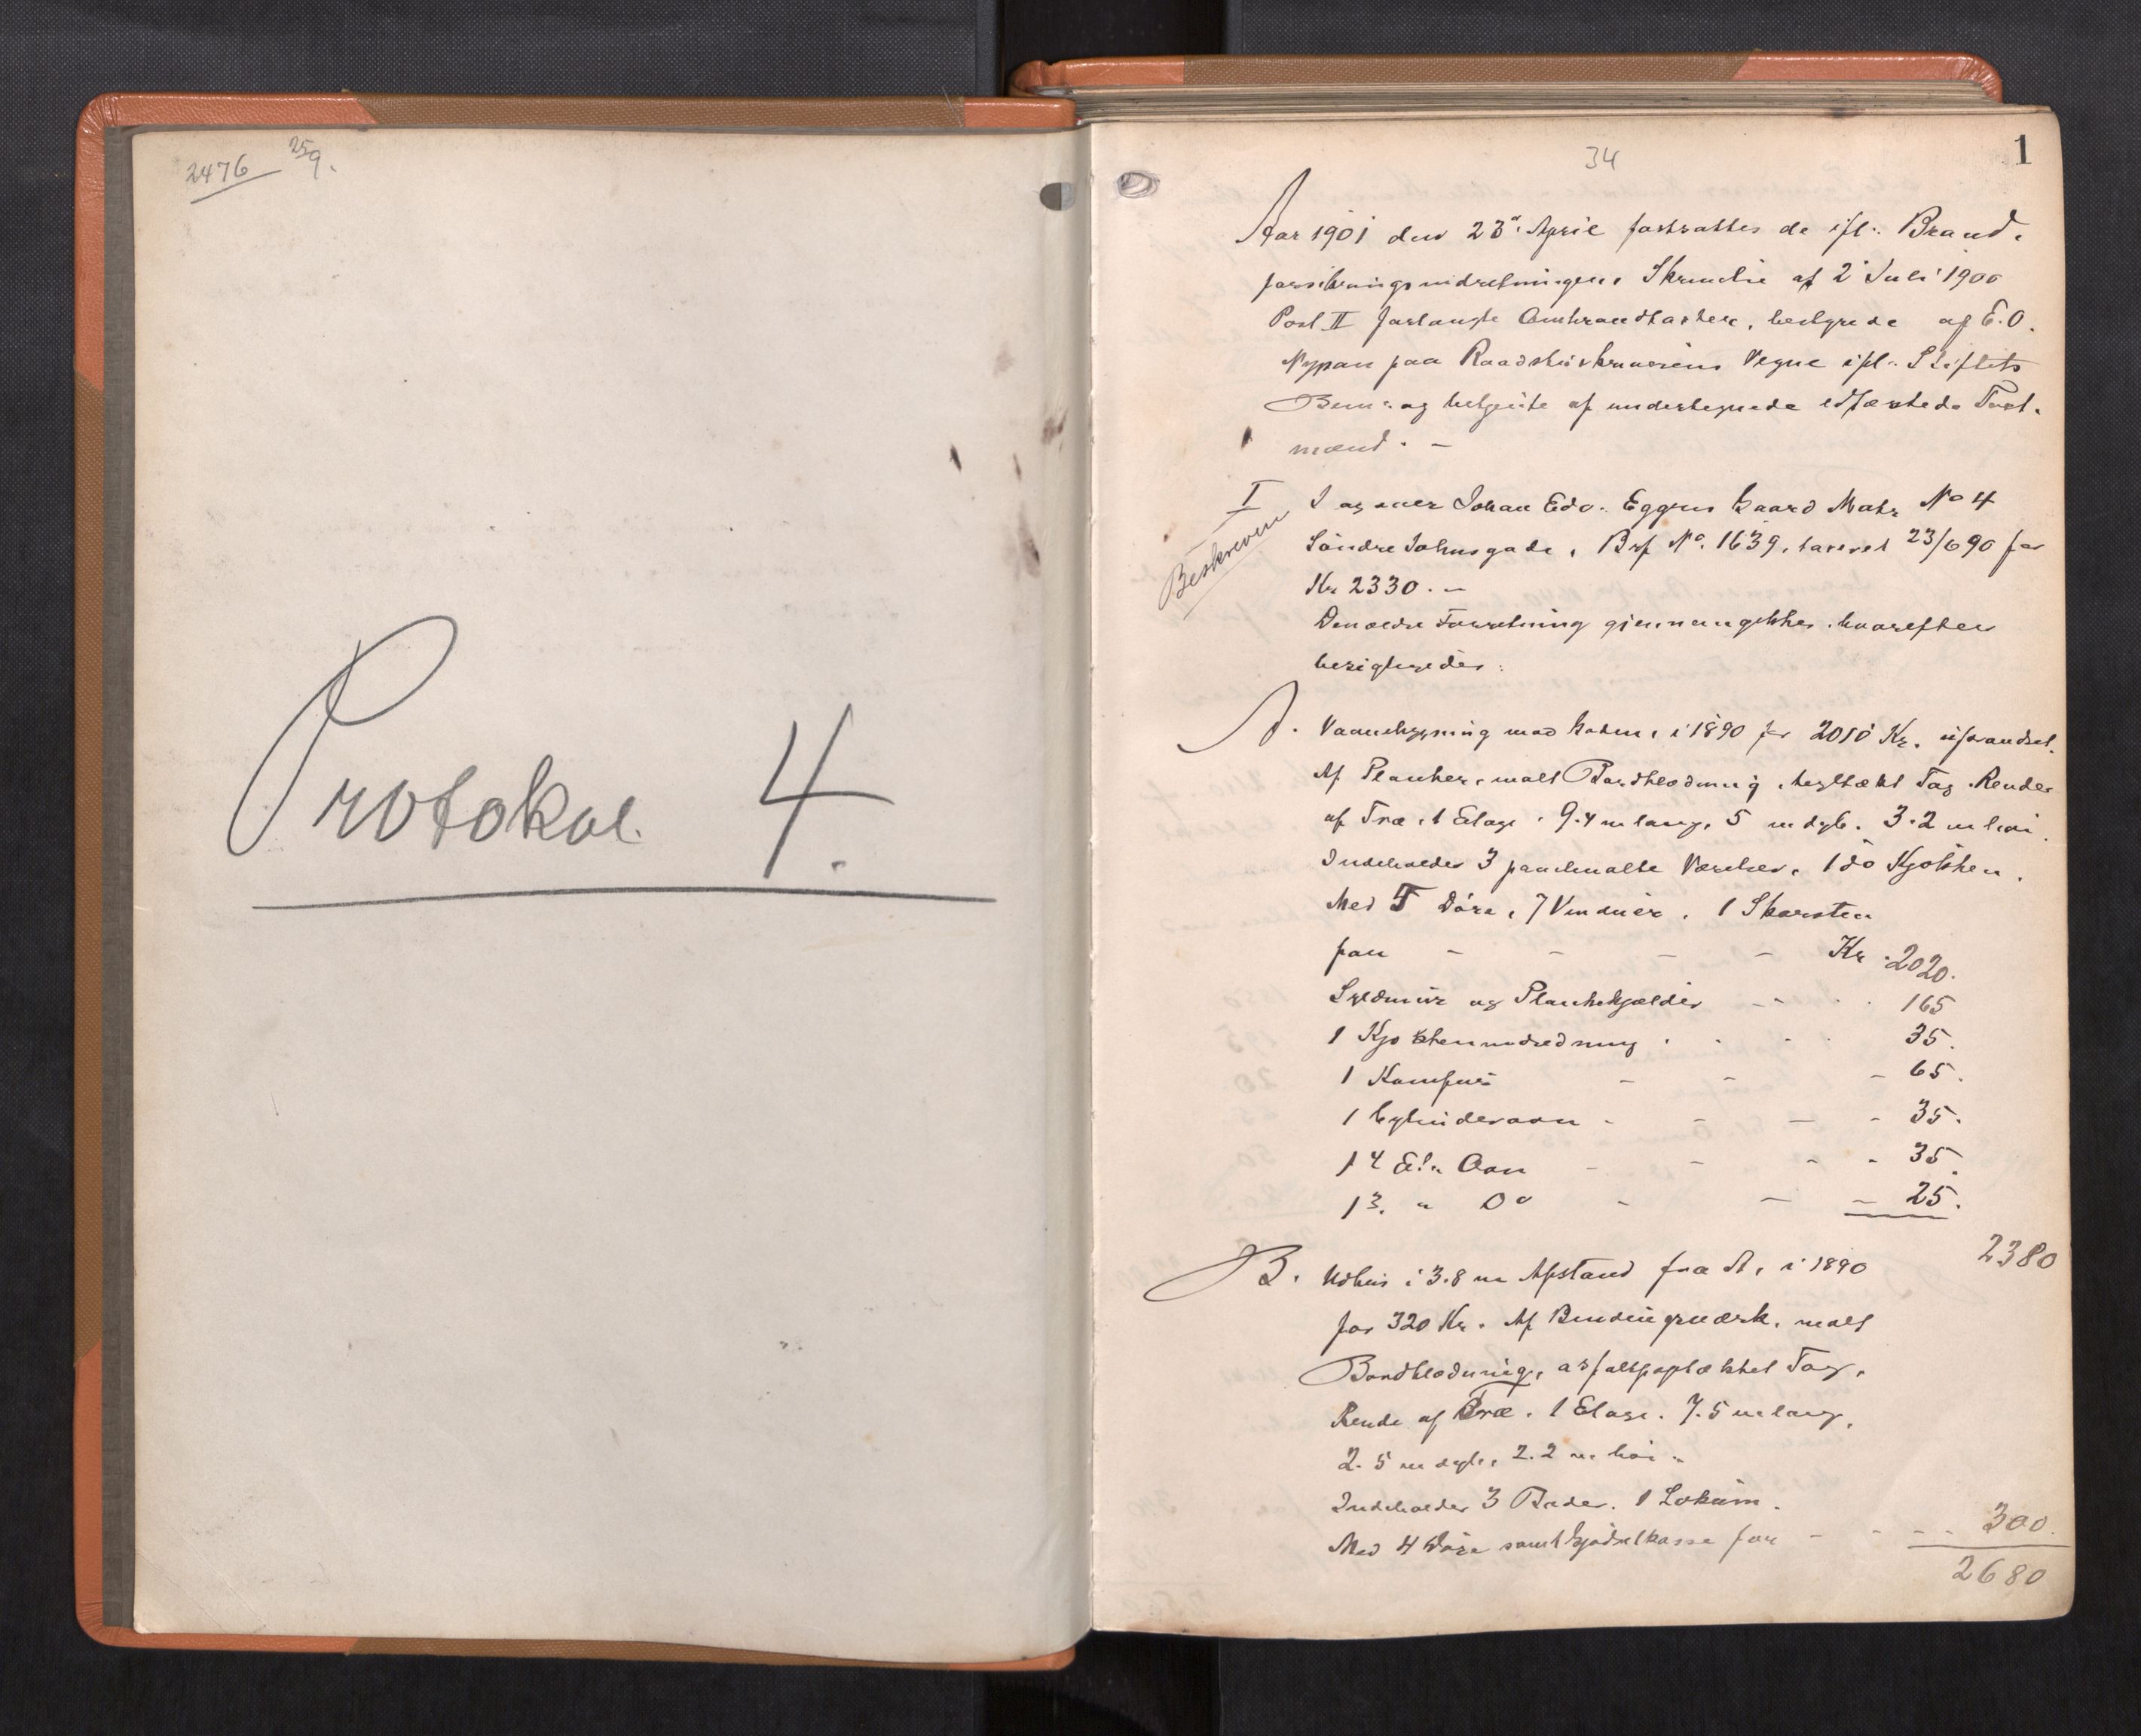 2476 25/9.
Protokol 4.
34
1
Aar 1901 den 23d April fortsattes de ifl. Brand-
forsikringsindretningens Skrivelse af 2 Juli 1900
Post II forlangte Ombrandtaxter, bestyrede af E. O.
Nypan paa Raadstueskriverens Vegne ifl. Stiftets
Bem. og betjente af undertegnede edfæstede Taxt-
mænd. —
I
Beskreven
I Johan Edv. Eggens Gaard Matr No 4
Søndre Johnsgade, Brf No. 1639, taxeret 23/6 90 for
Kr 2330. —
Den ældre Forretning gjennemgikkes hvorefter
besigtigedes:
A. Vaaningsbygning i 1890 for 2010 Kr. uforandret.
Af Planker, malt Bordklædning, teglt. Tag. Render
af Træ, 1 Etage. 9.4 m lang, 5 m dyb. 3.2 m høi.
Indeholder 3 panelmalte Værelser, 1 do Kjøkken.
Med 5 Døre, 7 Vinduer. 1 Skorsten
paa - - - - Kr. 2020.
Syldmur og Plankekjælder - - 165
1 Kjøkkenindredning . . . 35.
1 Komfur - - - 65.
1 Cylinderovn - - — - 35.
1 4 Et. Ovn - - - - 35.
1 3. " Do - — - 25.
2380
B. Udhus i 3.8 m Afstand fra A, i 1890
for 320 Kr. Af Bindingsværk, malt
Bordklædning, asfaltpaptækket Tag,
Rende af Træ. 1 Etage. 7.5 m lang,
2.5 m dyb, 2.2 m høi.
Indeholder 3 Boder. 1 Lokum.
Med 4 Døre samt Gjødselkasse for - - - - 300.
2680